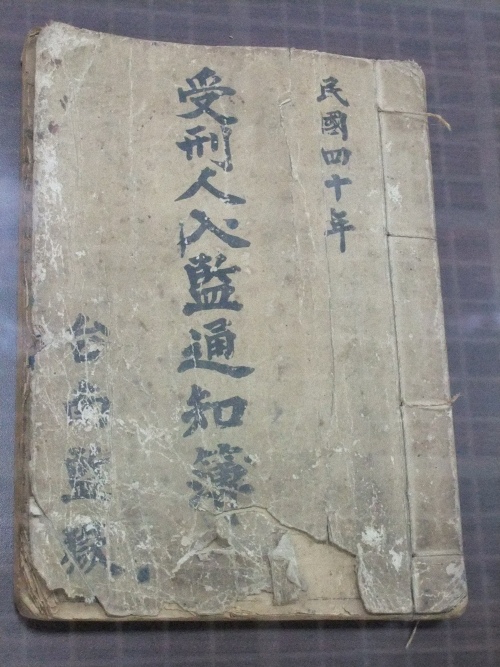 民國四十年
受刑人入監通知簿
台南監獄